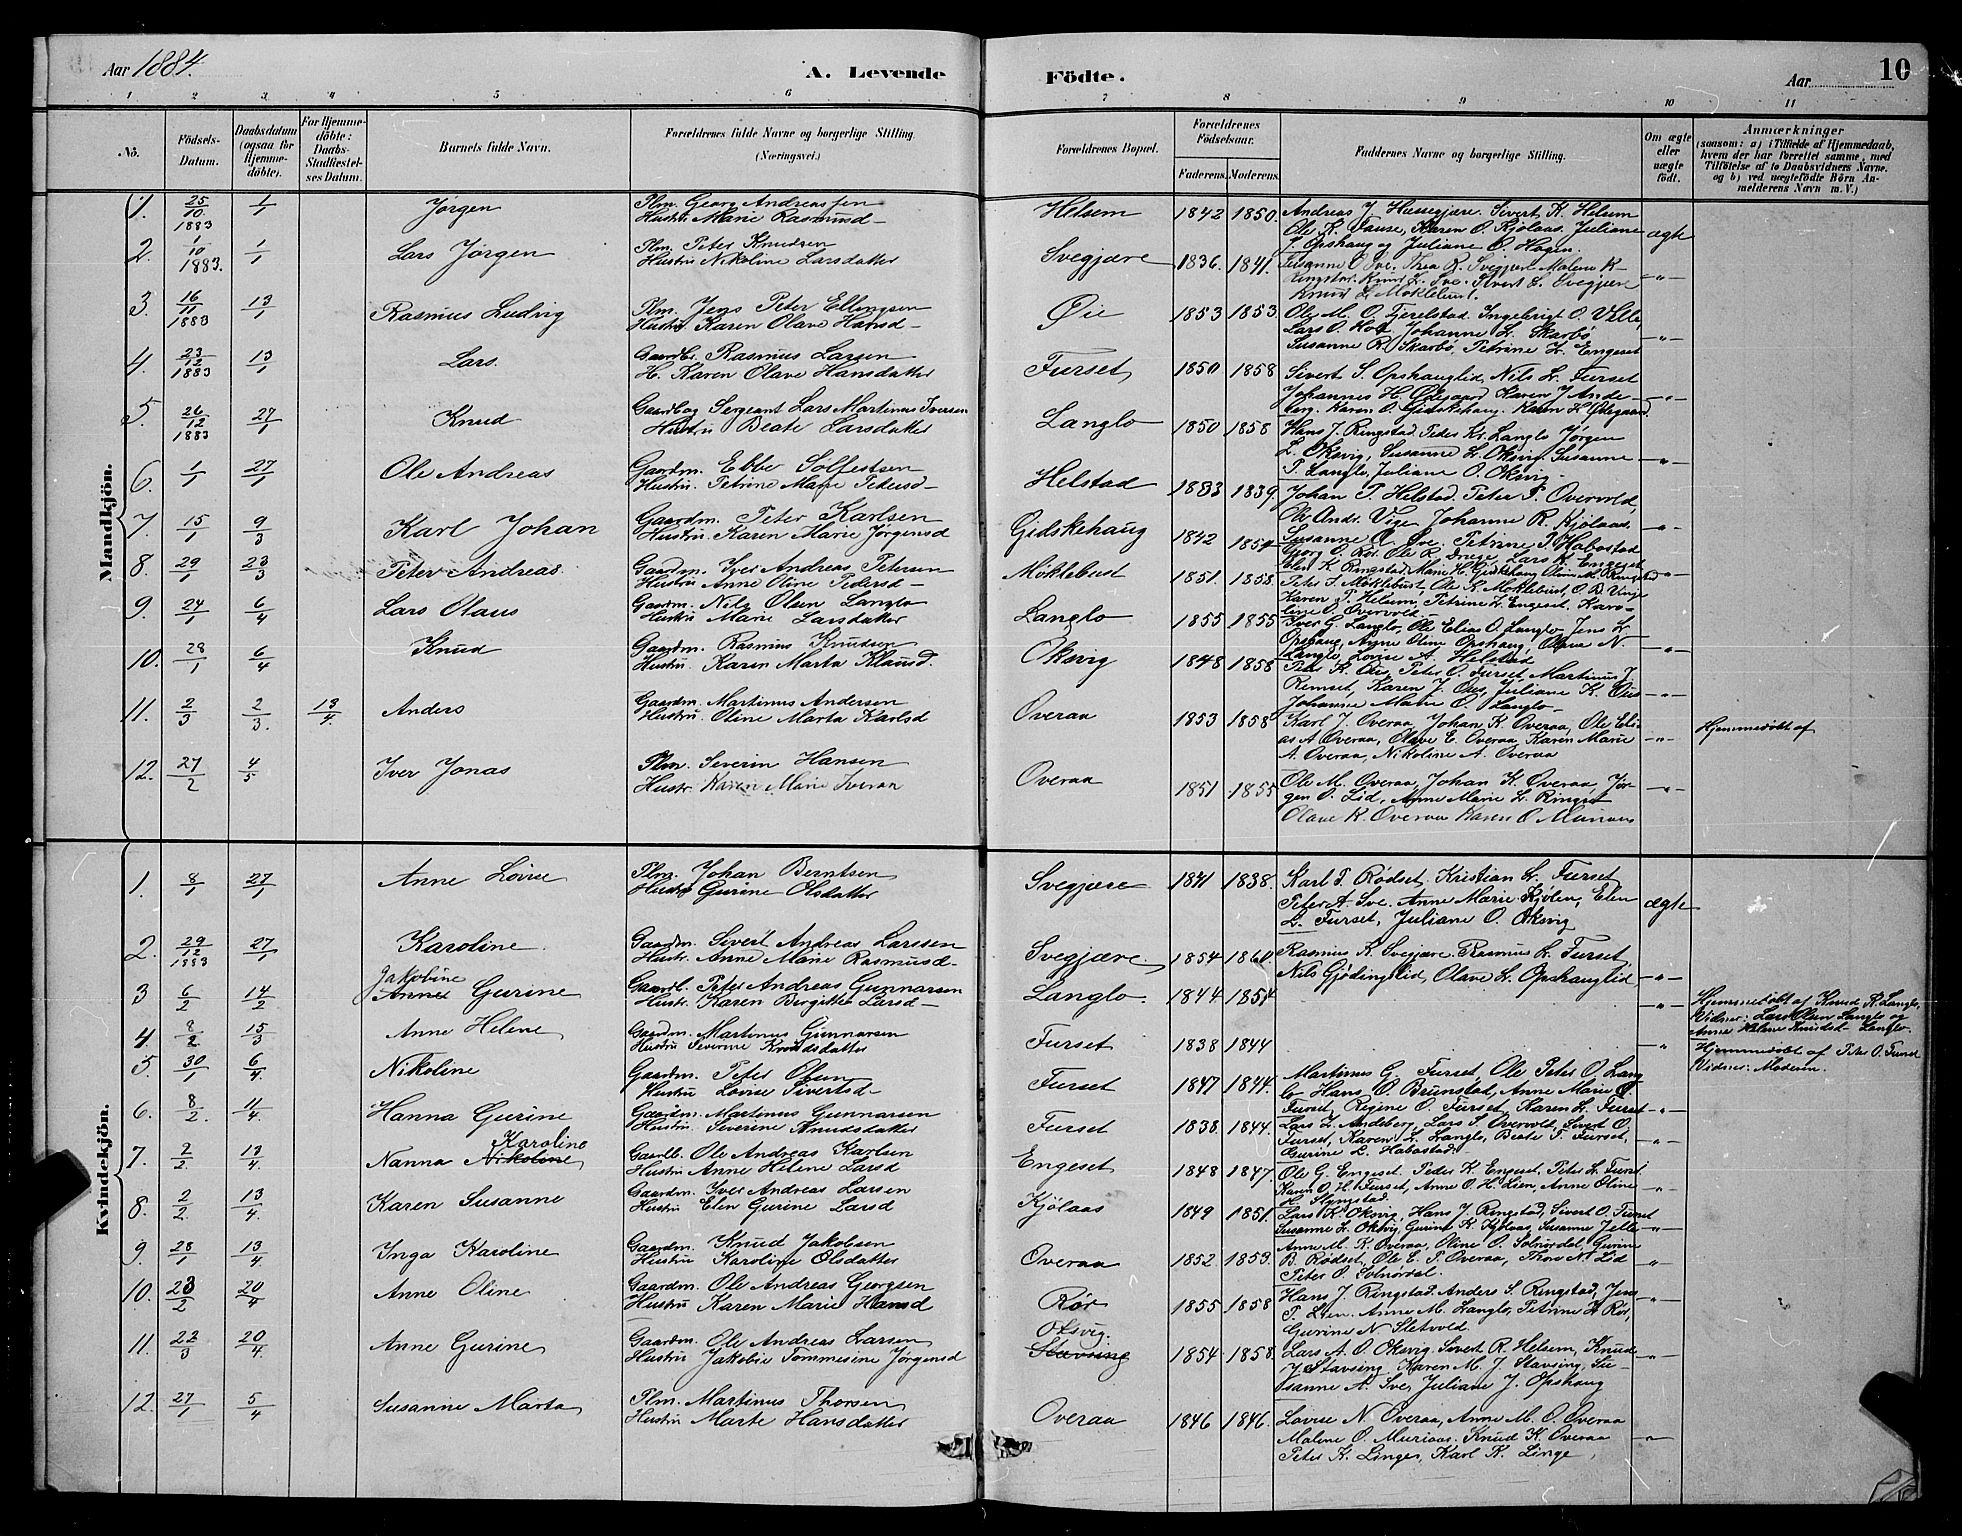 Aar 1884.
A. Levende Födte.
Aar
10
1 2 3 4 5 6 7 8 9 10 11
No.
Födsels-Datum.
Daabsdatum (ogsaa for Hjemme-döbte).
For Hjemme-döbte: Daabs-Stadfæstel-ses Datum.
Barnets fulde Navn.
Forældrenes fulde Navne og borgerlige Stilling. (Næringsvei.)
Forældrenes Bopæl.
Forældrenes Födselsaar.
Faderens. Moderens.
Faddernes Navne og borgerlige Stilling.
Om ægte eller uægte födt.
Anmærkninger
(saasom: a) i Tilfælde af Hjemmedaab,
hvem der har forrettet samme, med
Tilföielse af to Daabsvidners Navne.
og b) ved uægtefödte Börn An-
melderens Navn m. V.)
Mandkjön.
1. 25/10 1883 1/1 Jørgen Plm. Georg Andreassen Helsem 1842 1850. Andreas J. Hussegjære. Sivert K. Helsem
Hustru Marie Rasmusd- Ole K. Fause, Karen O. Kjölaas, Juliane ægte
2. 1/10 1883. 1/1 Lars Jørgen Plm. Peter Knudsen Svegjære 1836. 1841. J. Opshaug og Juliane O. Hagen.
Hustru Nikoline Larsdatter Susanne O. Sve. Thea R. Svegjære Malene K- -"-
Ringstad. Knud L. Sve. Sivert E. Svegjære
Knud L. Möklebust.
3. 16/11 1883 13/1 Rasmus Ludvig Plm. Jens Peter Ellingsen Øie 1853 1853 Ole M. O. Fjerelstad, Ingebrigt O. Velle,
Hustru Karen Olave Hansd- Lars O. Hol, Johanne L. Skarbö, -"-
Susanne R. Skarbö, Petrine L. Engeset
4. 23/12 1883 13/1 Lars. Gaardbr. Rasmus Larsen Furset, 1850 1858 Sivert S. Opshauglid, Nils L. Furset
H. Karen Olave Hansdatter Johannes H. Ødegaard Karen J. Ande- -"-
berg. Karen O. Gidskehaug. Karen H. Ødegaard
5. 26/12 1883 27/1 Knud Gaardb og Sergeant Lars Martinus Iversen Langlo 1850 1858 Hans J. Ringstad. Peder Kr. Langlo Jørgen
Hustru Beate Larsdatter L. Oksvig, Susanne L. Oksvig. Susanne -"-
P. Langlo, Juliane O. Oksvig.
6. 1/1 27/1 Ole Andreas Gaardm. Ebbe Solfestsen Helstad 1833 1839 Johan P. Helstad. Peter P. Overvold,
Hustru. Petrine Marie Pedersd- Ole Andr. Vige, Johanne R. Kjölaas.
7. 15/1 9/3 Karl Johan Gaardm. Peter Karlsen Gidskehaug 1842 1854 Susanne A. Sve. Petrine P. Habostad -"-
Hustru. Karen Marie Jørgensd
8. 29/1 23/3 Peter Andreas. Gaardm. Iver Andreas Petersen Möklebust 1851. 1858 Georg O. Rör. Ole R. Drege, Lars K. Engeset
Hustru Anne Oline Pedersd- Elen K. Ringstad, Marie H. Gidskehaug Oline M. Ringstad -"-
9. 24/1 6/4 Lars Olaus Gaardm. Nils Olsen Langlo Langlo 1855 1855 Peter J. Möklebust, Ole K. Möklebust, O. B. Vinje
Hustru Marie Larsdatter Karen P. Helsem, Petrine L. Engeset, Karo-
line O. Overvold-
10. 28/1 6/4 Knud Gaardm. Rasmus Knudsen Oksvig 1848 1858 Iver G. Langlo, Ole Elias O. Langlo, Jens L.
Hustru. Karen Marta Klausd. Opshaug, Anne Oline Opshaug, Olave N. -"-
Langlo, Lovise A. Helstad
11. 2/3 2/3. 13/4. Anders Gaardm. Martinus Andersen Overaa 1853 1858 Peter K. Øies, Peter O. Furset, Martinus J.
Hustru. Oline Marta Karlsd Remset, Karen J. Øies, Juliane K. Øies -"-
Johanne Malene O. Langlo-
Karl J. Overaa, Johan K. Overaa, Ole Eli- Hjemmedöbt af
as A. Overaa, Olave E. Overaa Karen Marie -"-
A. Overaa, Nikoline A. Overaa
12. 27/2 4/5 Iver Jonas Plm. Severin Hansen Overaa 1851 1855 Ole M. Overaa, Johan K. Overaa, Jør-
Hustr. Karen Marie Iversn gen O. Lid, Anne Marie L. Ringset -"-
Olave K. Overaa Karen O. Muriaas
Kvindekjön.
1. 8/1 27/1 Anne Lovise Plm. Johan Berntsen Svegjære 1841 1838. Karl P. Rödset, Kristian L. Furset
Hustru Gurine Olsdatter Peter A. Sve. Anne Marie Kjölen, Elen ægte
L. Furset, Juliane O. Oksvig
2. 29/12 1883 27/1 Karoline Gaardm. Sivert Andreas Larssen Svegjære 1854 1860. Rasmus K. Svegjære. Rasmus L. Furset,
Hustr. Anne Marie Rasmusd- Nils Gjödinglid, Olave L. Opshauglid -"-
Jakobine
3 6/2 14/2 Anne Gurine Gaardb. Peter Andreas Gunnarsen Langlo 1844 1854 -"- Hjemmedöbt af Knud R. Langlo,
Hustr. Karen Birgitte Larsd- Vidner: Lars Olsen Langlo og
Anne Helene Knudsd- Langlo.
4. 8/2 15/3 Anne Helene Gaardm. Martinus Gunnarsen Furset 1838 1844 " Hjemmedöbt af Peter O. Furset
Hustru Severine Knudsdatter Vidner: Moderen.
5. 30/1 6/4. Nikoline Gaardm. Peter Olsen Furset 1847 1844. Martinus G. Furset, Ole Peter O. Lang
Hustru Lovise Sivertsd- lo Hans O. Brunstad, Anne Marie O.
Furset, Regine O. Furset, Karen L. Furset -"-
6. 8/2. 11/4. Hanna Gurine Gaardm. Martinus Gunnarsen Furset 1838 1844. Lars L. Andeberg, Lars S. Overvold, Sivert O.
Hustru. Severine Knudsdatter Furset, Karen L. Langlo, Beate T. Furset, -"-
Karoline Gurine L. Habostad.
7. 2/2 13/4. Nanna Nikoline Gaardb. Ole Andreas Karlsen Engeset 1848 1847. Ole G. Engeset. Peder K. Engeset, Peter L. Furset
Hustru Anne Helene Larsd Karen O. H. Furset, Anne O. H. Lien, Anne Oline -"-
H. Slyngstad.
8. 2/2. 13/4. Karen Susanne Gaardm. Iver Andreas Larsen Kjölaas 1849 1851. Lars K. Oksvig, Hans J. Ringstad, Sivert O. Furset
Hustru Elen Gurine Larsd Susanne L. Oksvig, Gurine K. Kjölaas, Susanne Jelle -"-
9. 28/1 13/4. Inga Karoline Gaardm. Knud Jakobsen Overaa 1852 1853. Anne M. K. Overaa, Oline O. Solnördal, Gurine
Hustru Karoline Olsdatter B. Rödset, Ole E. P. Overaa, Thore N. Lid -"-
Peter O. Solnördal.
10. 23/2 20/4 Anne Oline Gaardm. Ole Andreas Georgsen Rör 1855 1858 Hans J. Ringstad. Anders S. Ringstad, Jens
Hustru Karen Marie Hansd P. Lien. Anne M. Langlo, Petrine K. Rör, -"-
Gurine N. Sletvold.
11. 22/3 20/4. Anne Gurine Gaardm. Ole Andreas Larsen Oksvig. Stavseng 1854 1858. Lars A. O. Oksvig. Sivert R. Helsem, Knud -"-
Hustru Jakobie Tommesine Jørgensd J. Stavseng, Karen M. J. Stavseng, Su-
sanne A. Sve, Juliane J. Opshaug
12. 27/1 5/4 Susanne Marta Plm. Martinus Thorsen Overaa 1846 1846. Lovise N. Overaa, Anne M. O. Overaa
Hustru Marte Hansdatter Malene O. Muriaas. Knud K. Overaa -"-
Peter K. Linges, Karl K. Linge